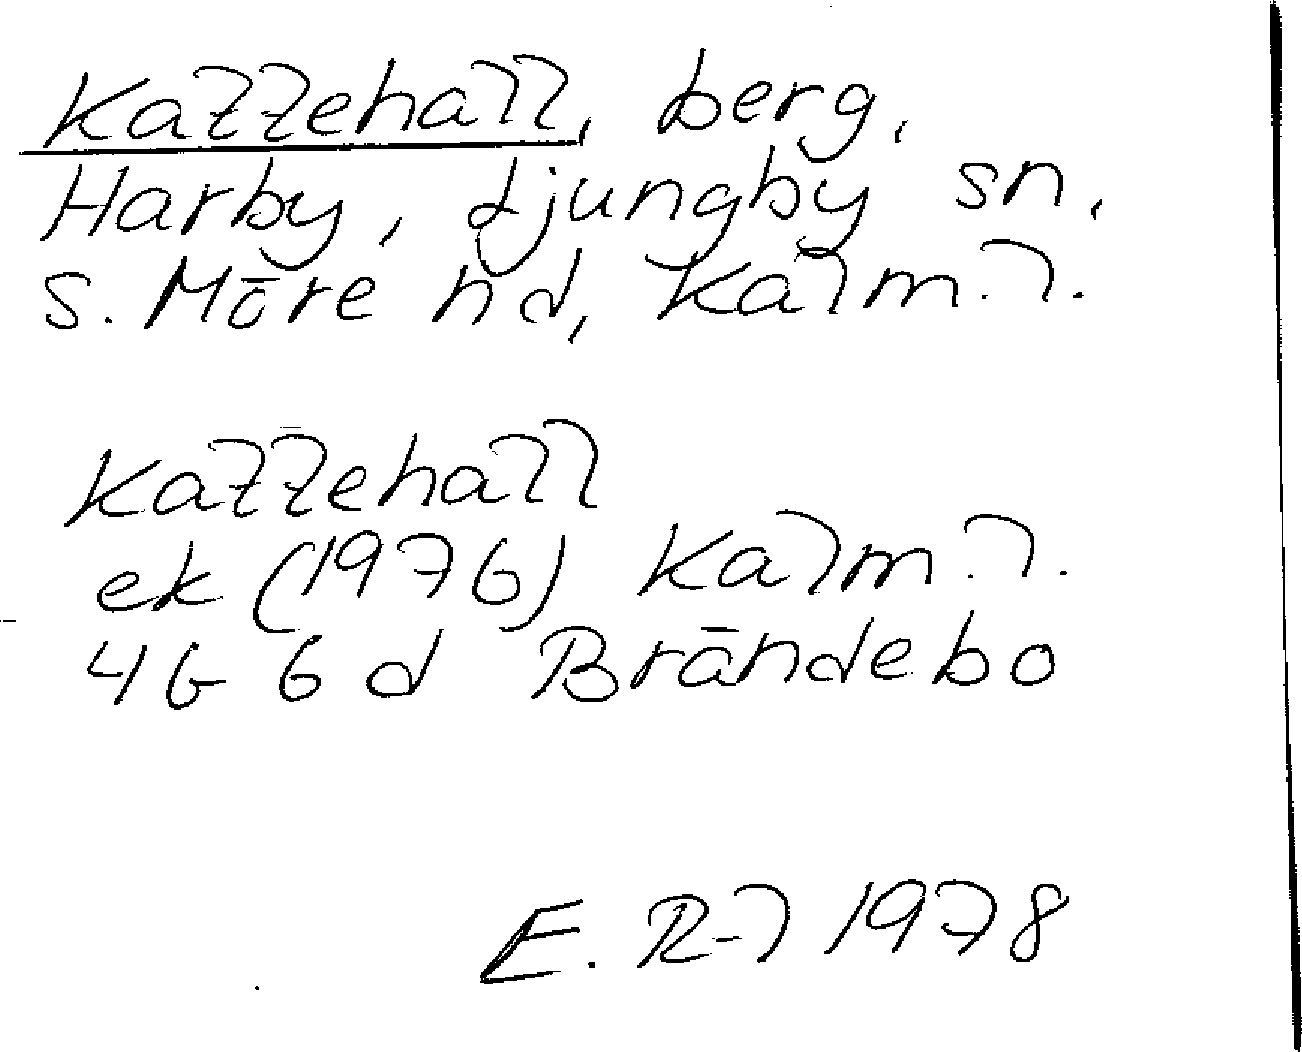 Kattehall, berg,
Harby, Ljungby sn,
S. Möre hd, Kalm. l.
Kattehall
ek (1976) Kalm. l.
4G 6d Brändebo
E. R-l 1978